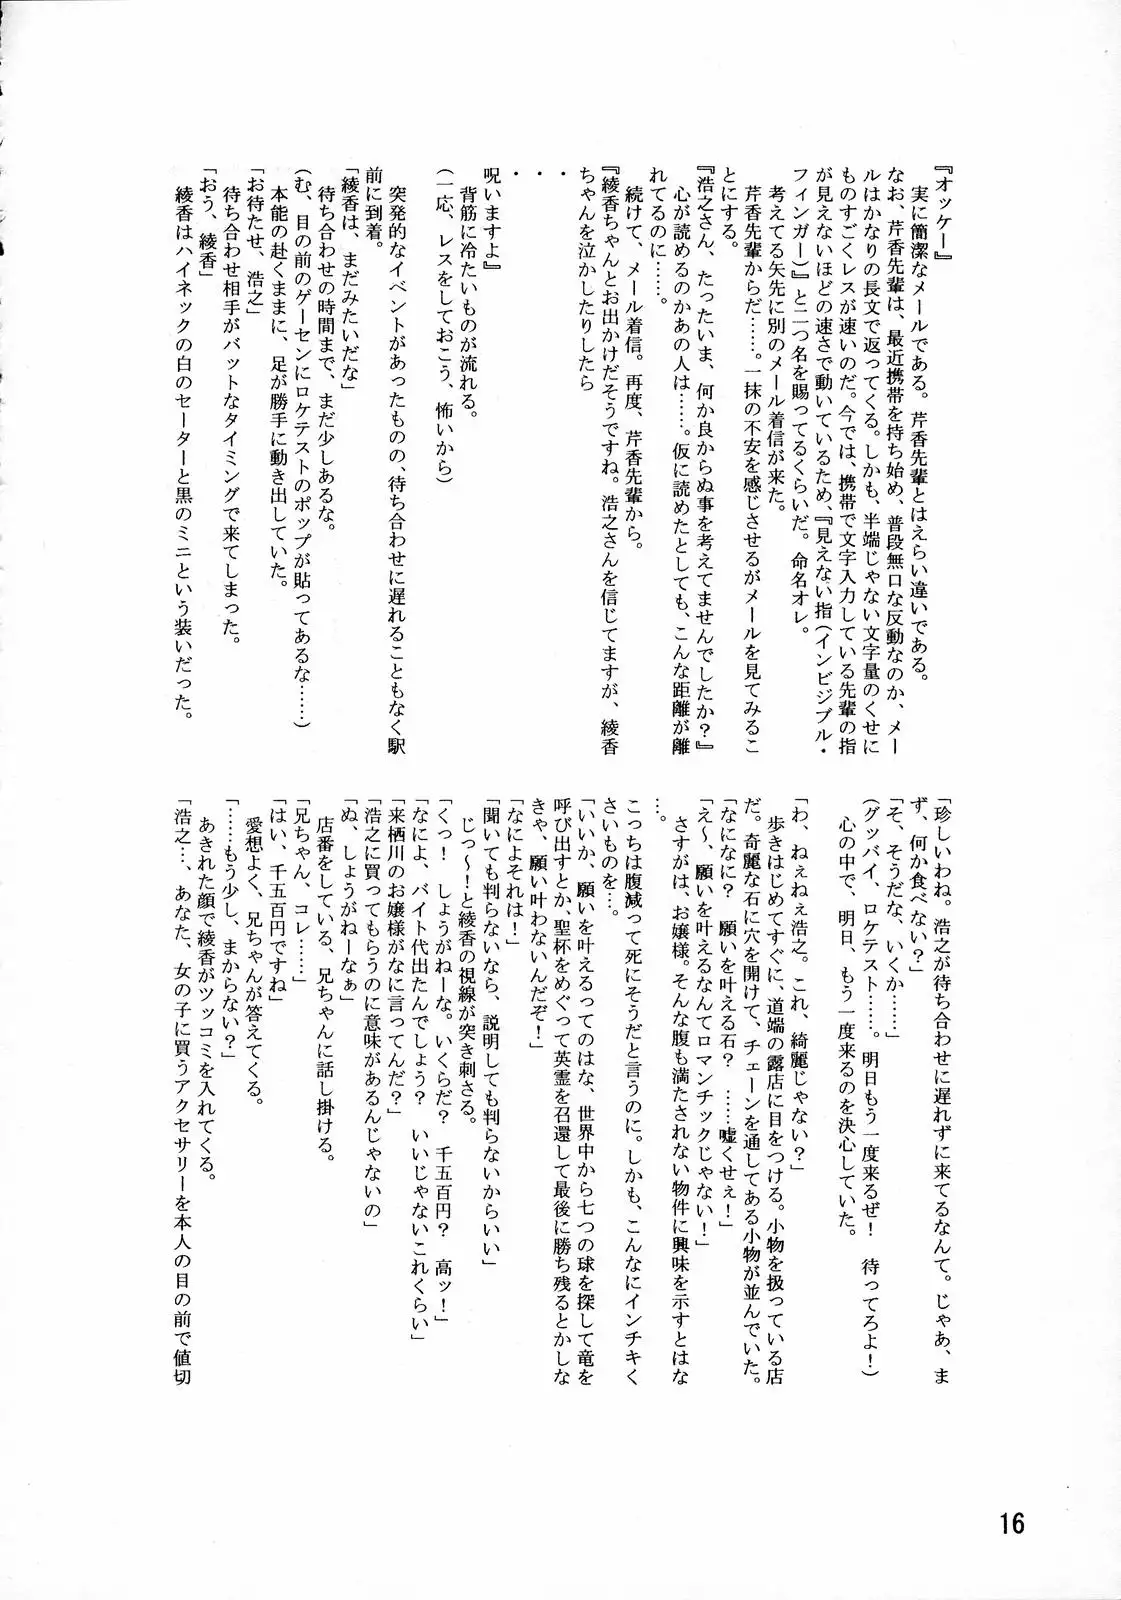 『オッケー』
　実に簡潔なメールである。芹香先輩とはえらい違いである。
なお、芹香先輩は、最近携帯を持ち始め、普段無口な反動なのか、メー
ルはかなりの長文で返ってくる。しかも、半端じゃない文字量のくせに
ものすごくレスが速いのだ。今では、携帯で文字入力している先輩の指
が見えないほどの速さで動いているため、『見えない指（インビジブル・
フィンガー）』と二つ名を賜ってるくらいだ。命名オレ。
　考えてる矢先に別のメール着信が来た。
　芹香先輩からだ……。一抹の不安を感じさせるがメールを見てみるこ
とにする。
『浩之さん、たったいま、何か良からぬ事を考えてませんでしたか？』
　心が読めるのかあの人は……。仮に読めたとしても、こんな距離が離
れてるのに……。
　続けて、メール着信。再度、芹香先輩から。
『綾香ちゃんとお出かけだそうですね。浩之さんを信じてますが、綾香
ちゃんを泣かしたりしたら
・
・
・
呪いますよ』
　背筋に冷たいものが流れる。
（一応、レスをしておこう、怖いから）
　突発的なイベントがあったものの、待ち合わせに遅れることもなく駅
前に到着。
「綾香は、まだみたいだな」
　待ち合わせの時間まで、まだ少しあるな。
（む、目の前のゲーセンにロケテストのポップが貼ってあるな……）
　本能の赴くままに、足が勝手に動き出していた。
「お待たせ、浩之」
　待ち合わせ相手がバットなタイミングで来てしまった。
「おう、綾香」
　綾香はハイネックの白のセーターと黒のミニという装いだった。
「珍しいわね。浩之が待ち合わせに遅れずに来てるなんて。じゃあ、ま
ず、何か食べない？」
「そ、そうだな、いくか……」
（グッバイ、ロケテスト……。明日もう一度来るぜ！　待ってろよ！）
　心の中で、明日、もう一度来るのを決心していた。
「わ、ねぇねぇ浩之。これ、綺麗じゃない？」
　歩きはじめてすぐに、道端の露店に目をつける。小物を扱っている店
だ。奇麗な石に穴を開けて、チェーンを通してある小物が並んでいた。
「なになに？　願いを叶える石？　……嘘くせぇ！」
「え～、願いを叶えるなんてロマンチックじゃない！」
　さすがは、お嬢様。そんな腹も満たされない物件に興味を示すとはな
…。
こっちは腹減って死にそうだと言うのに。しかも、こんなにインチキく
さいものを…。
「いいか、願いを叶えるってのはな、世界中から七つの球を探して竜を
呼び出すとか、聖杯をめぐって英霊を召還して最後に勝ち残るとかしな
きゃ、願い叶わないんだぞ！」
「なによそれは！」
「聞いても判らないなら、説明しても判らないからいい」
　じっ～！と綾香の視線が突き刺さる。
「くっ！　しょうがねーな。いくらだ？　千五百円？　高ッ！」
「なによ、バイト代出たんでしょう？　いいじゃないこれくらい」
「来栖川のお嬢様がなに言ってんだ？」
「浩之に買ってもらうのに意味があるんじゃないの」
「ぬ、しょうがねーなぁ」
　店番をしている、兄ちゃんに話し掛ける。
「兄ちゃん、コレ……」
「はい、千五百円ですね」
　愛想よく、兄ちゃんが答えてくる。
「……もう少し、まからない？」
　あきれた顔で綾香がツッコミを入れてくる。
「浩之…、あなた、女の子に買うアクセサリーを本人の目の前で値切
16